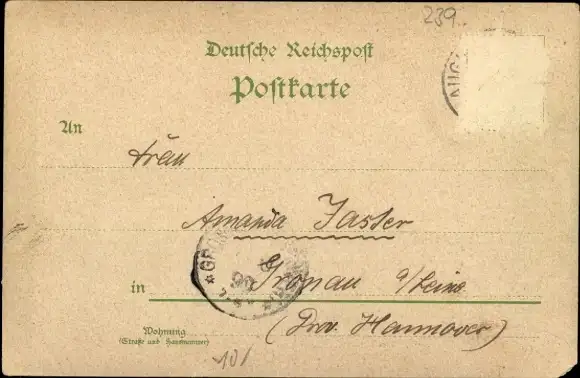 239.
Deutsche Reichspost
Postkarte
AUG
An
Frau
Amanda Jasser
in Gronau a/Leine
(Prov. Hannover)
Wohnung
(Straße und Hausnummer)
101